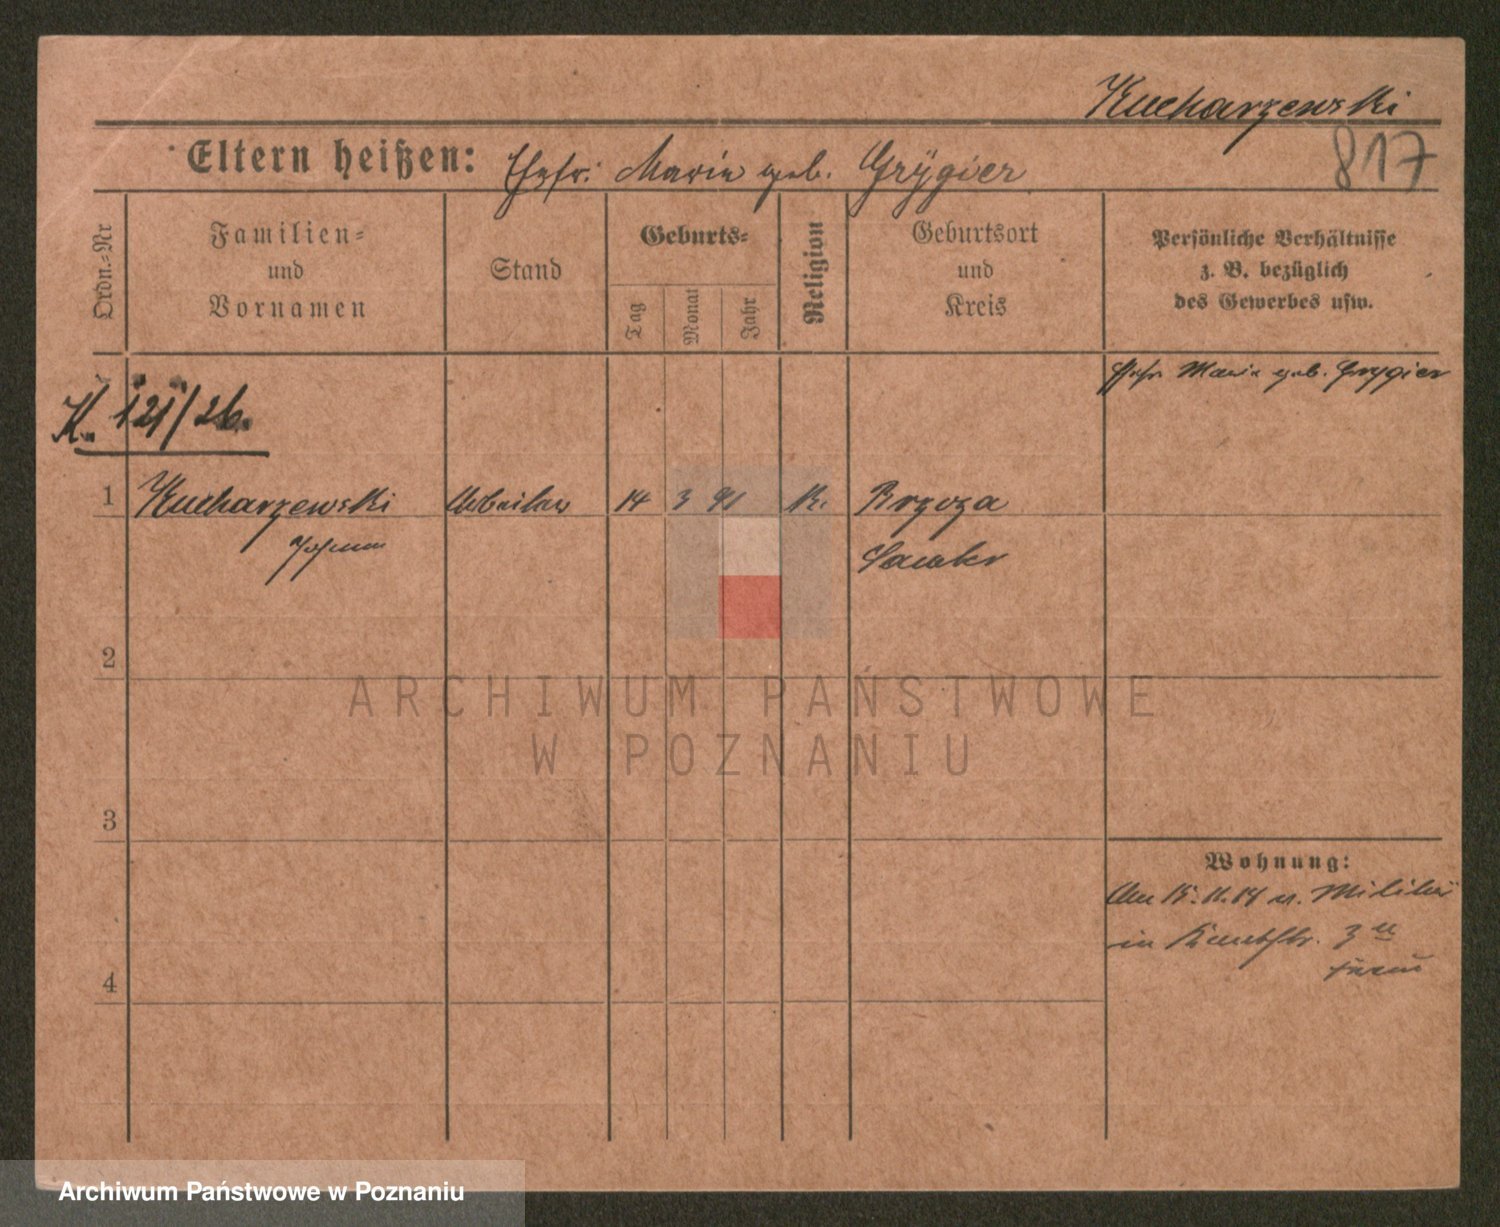 Kucharzewski
817
Eltern heißen: Ehefr. Marie geb. Grÿgier
Ordn.-Nr
Familien-
und
Vornamen
Stand
Geburts-
Tag
Monat
Jahr
Religion
Geburtsort
und
Kreis
Persönliche Verhältnisse
z. B. bezüglich
des Gewerbes usw.
Ehefr. Marie geb. Grygier
K. 121/26.
1 Kucharzewski Arbeiter 14 3 91 K. Brzoza
Johann Samter
2
3
4
Wohnung:
Am 15.11.14 v. Militär
in
ARCHIWUM PAŃSTWOWE
W POZNANIU
Archiwum Państwowe w Poznaniu